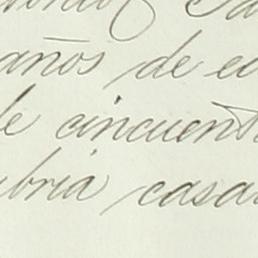 años de e
e cincuent
bria casa